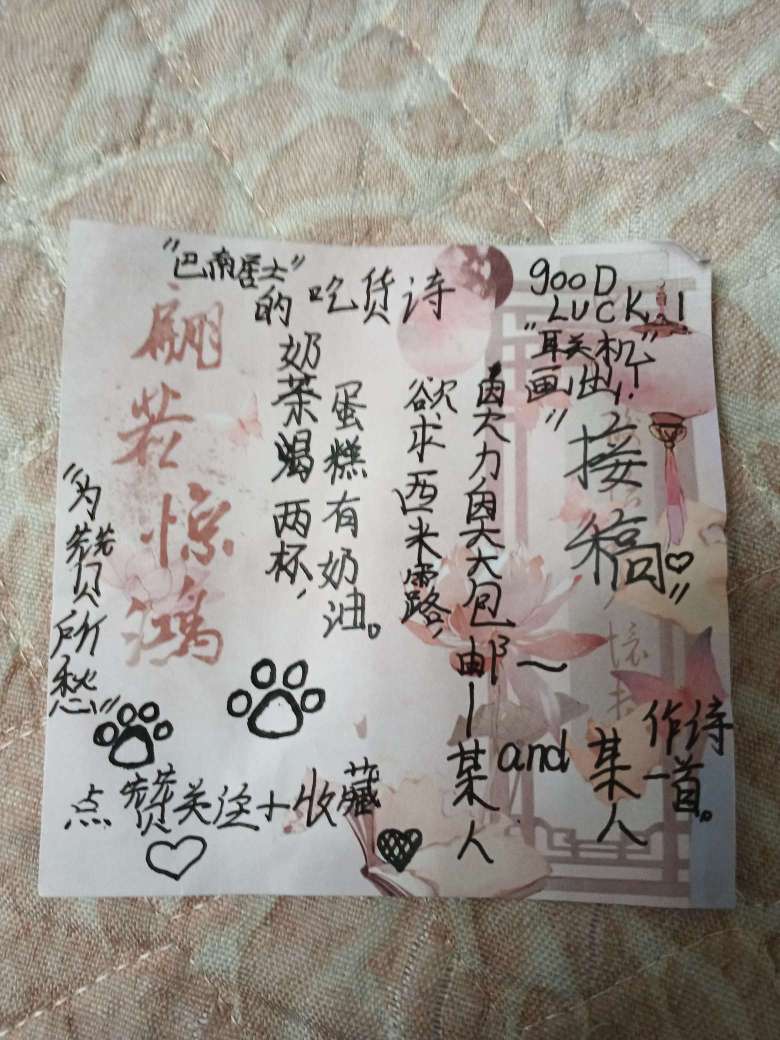 "巴南居士"
的吃货诗
gooD
LUCK!
"联机"
画出!
接稿♡"
翩若惊鸿
奶茶喝两杯,
蛋糕有奶油。
欲求西米露,
大包邮~
—某人and某人
作诗一首。
"为赞所愁"
点赞关注+收藏